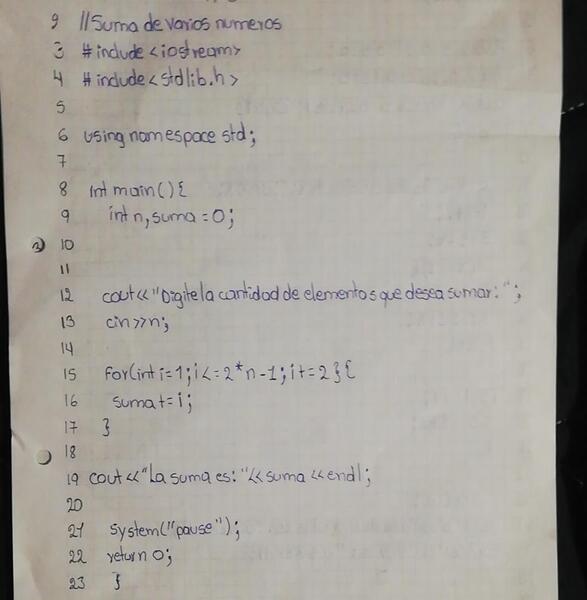 2 //Suma de varios numeros
3 #include <iostream>
4 #include <stdlib.h>
5
6 using namespace std;
7
8 int main() {
9 int n, suma = 0;
10
11
12 cout<< "Digite la cantidad de elementos que desea sumar: ";
13 cin>>n;
14
15 for(int i=1; i<=2*n-1; i+=2){
16 suma+=i;
17 }
18
19 cout<<"La suma es: "<<suma<<endl;
20
21 system("pause");
22 return 0;
23 }